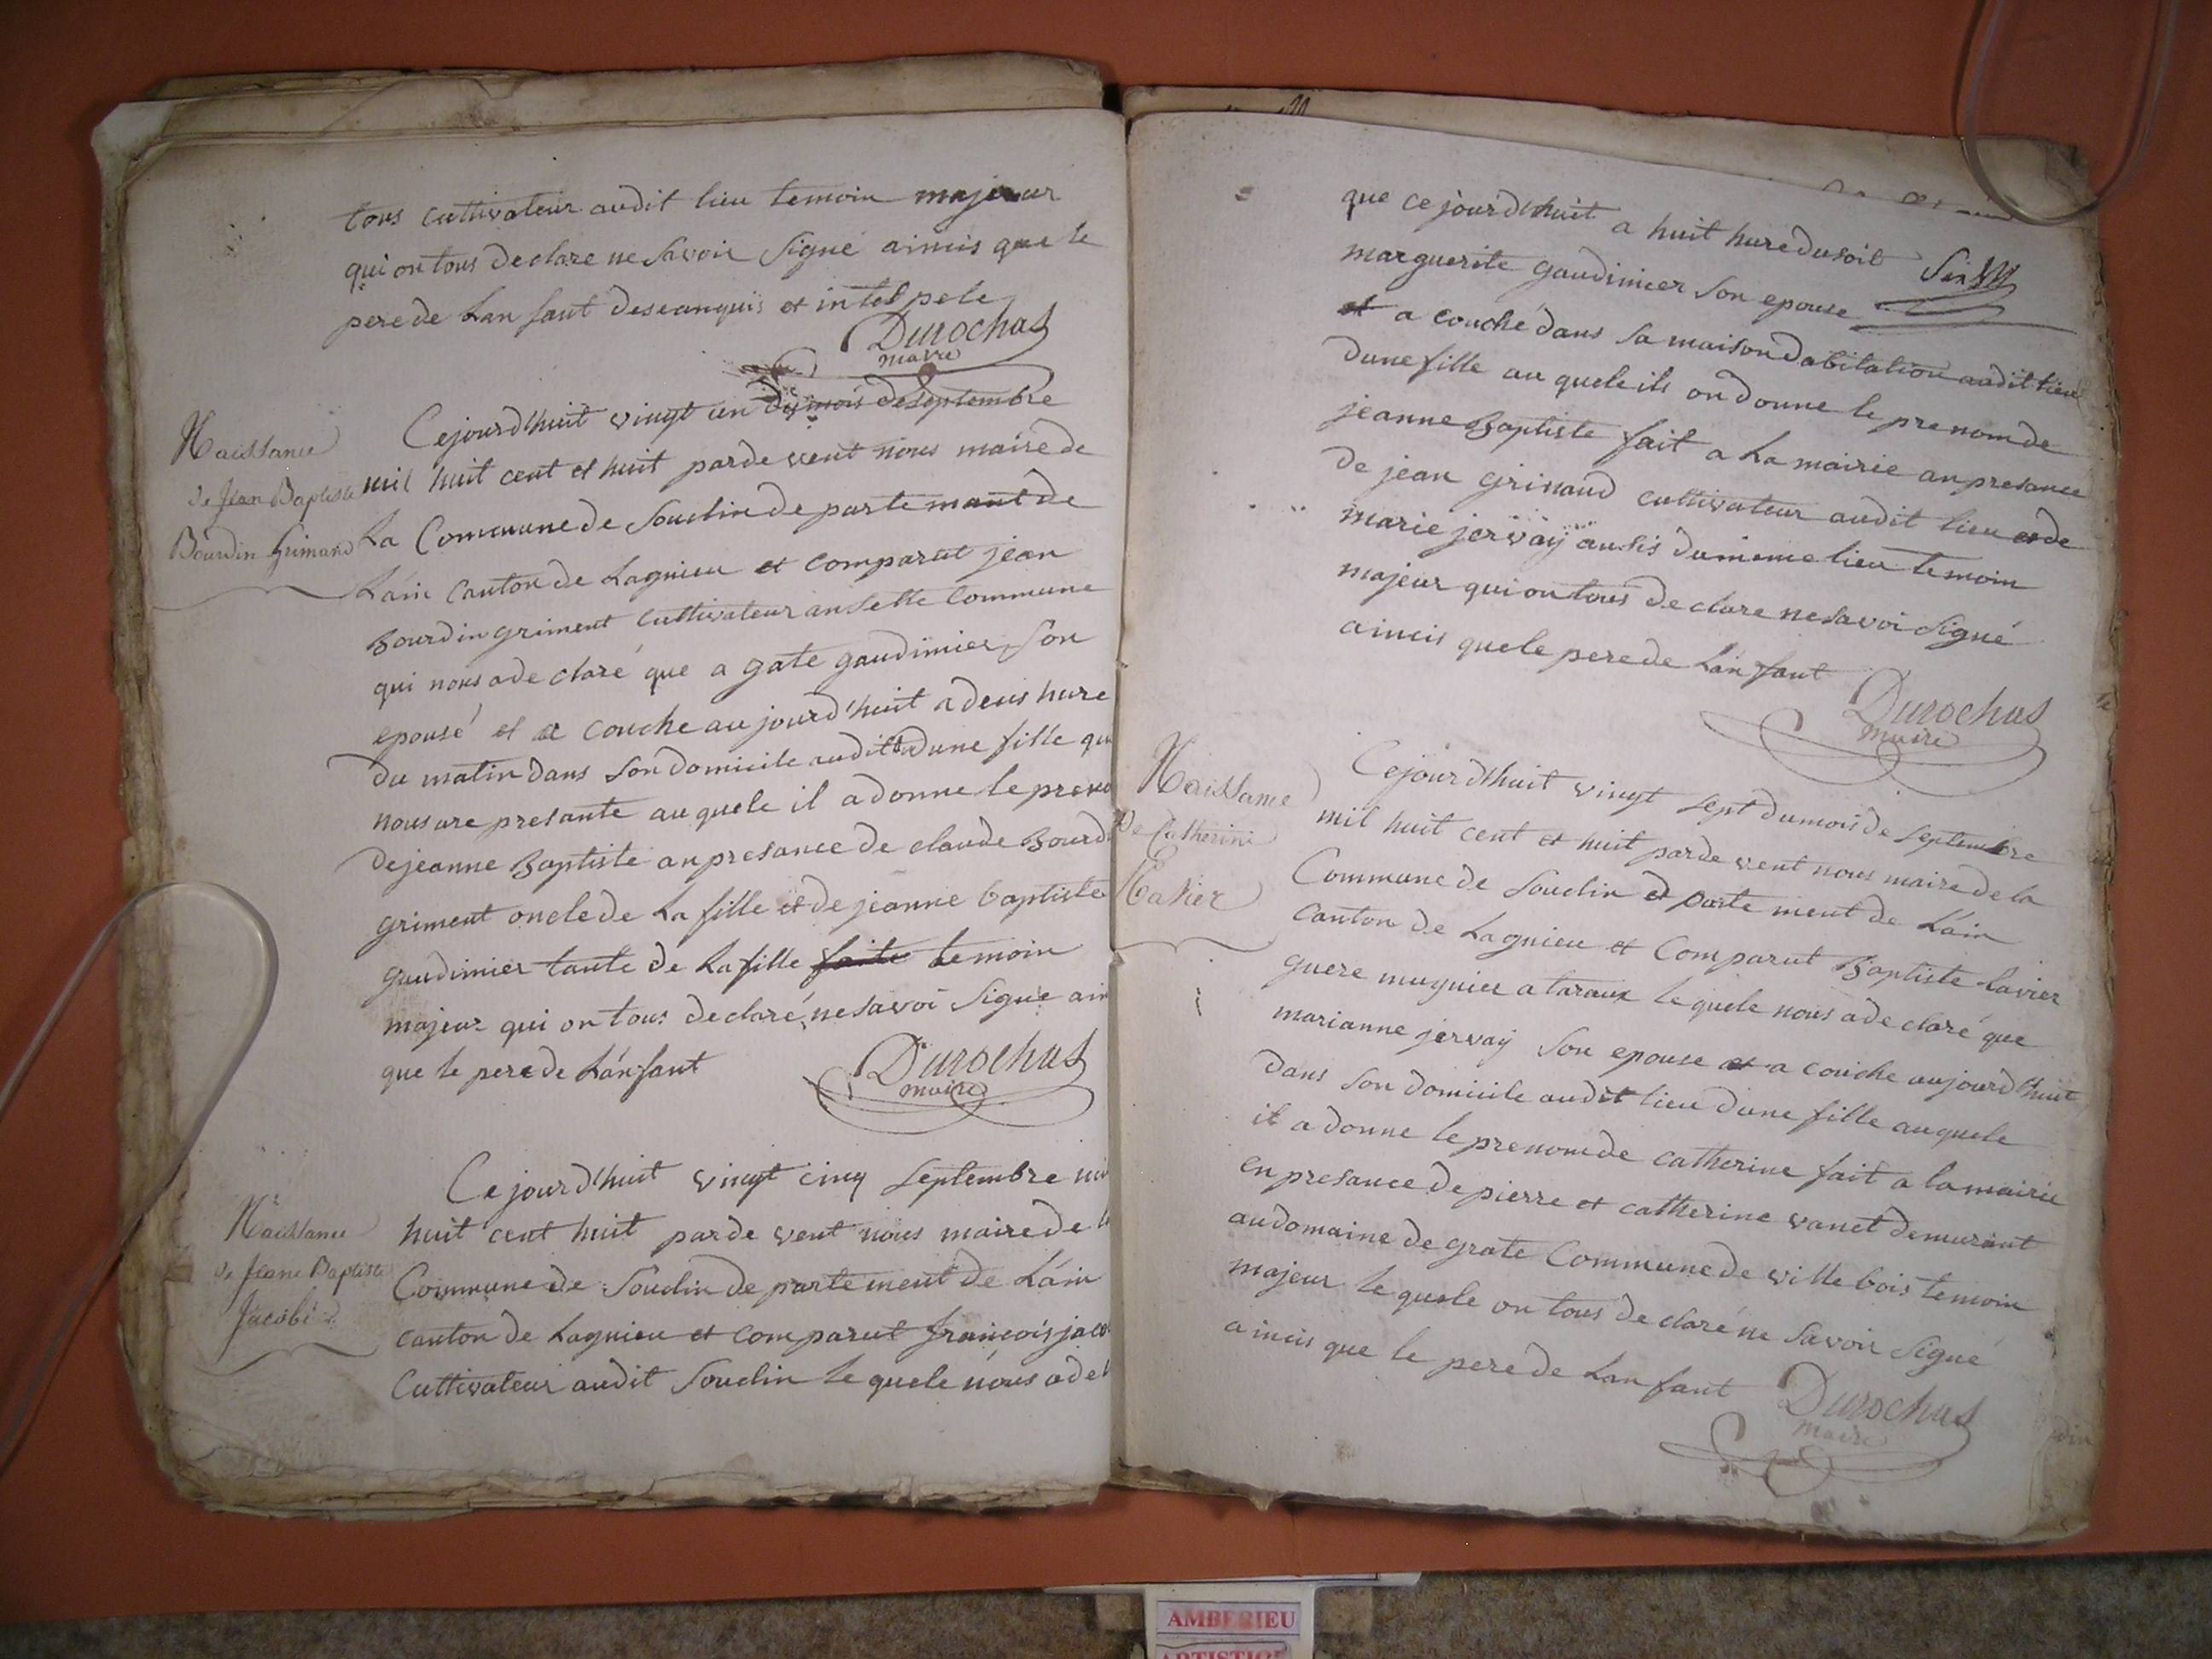 tous cultivateur audit lieu temoin majeur
qui on tous declare ne Savoir Signé aincis que le
pere de Lan fant deseanquis et intel pele
Durochas
maire
Naissance
de Jean Baptiste
Bourdin Grimand
Cejourdhuit vingt un du mois de Septembre
mil huit cent et huit parde vent nous maire de
La Commune de Souclin de partemant de
Lain Canton de Lagnieu et comparut jean
Bourdin griment Cultivateur an Sette Commune
qui nous a de claré que a gate gaudinier, Son
epousé et a couche au jourd'huit a deus hure
du matin dans Son domicile audit dune fille qu
nous are presante au quele il a donne le preno
de jeanne Baptiste an presance de claude Bourd
griment oncle de La fille et de jeanne baptiste
gaudinier tante de La fille temoin
majeur qui on tous declaré, ne Savoi Signé ain
que le pere de Lán fant
Durochas
maire
Naissance
de Jeane Baptiste
Jacobi
Ce jourd'huit vingt cinq Septembre mi
huit cent huit parde vent nous maire de l
Commune de Souclin de parte ment de Láin
canton de Lagnieu et comparut francois jaco
Cultivateur audit Souclin le quele nous a de
que ce jourd'huit a huit hure du soit
marguerite gaudinier Son epouse
et a couché dans Sa maison dabitation audit lieu
dune fille au quele ils on donne le pre nom de
jeanne Baptiste fait a La mairie an presance
de jean grinand cultivateur audit lieu et de
marie jervaÿ ausis du meme lieu temoin
majeur qui on tous de clare ne savoi Signé
aincis que le pere de Lán fant
Durochas
maire
Naissance
de Catherine
Cejourdhuit vingt Sept du mois de Septembre
mil huit cent et huit parde vent nous maire de la
Commune de Souclin de parte ment de Láin
Canton de Lagnieu et Comparut Baptiste
guere mugnier a taraux le quele nous a de claré que
marianne jervaÿ Son epouse et a couche aujourd'huit
dans Son domicile audit lieu dune fille auquele
il a donne le prenom de catherine fait a la mairie
en presance de pierre et catherine vanet demurant
au domaine de grate Commune de ville bois temoin
majeur le quele on tous de claré ne Savoir Signé
aincis que le pere de Lan fant
Durochas
maire
AMBERIEU